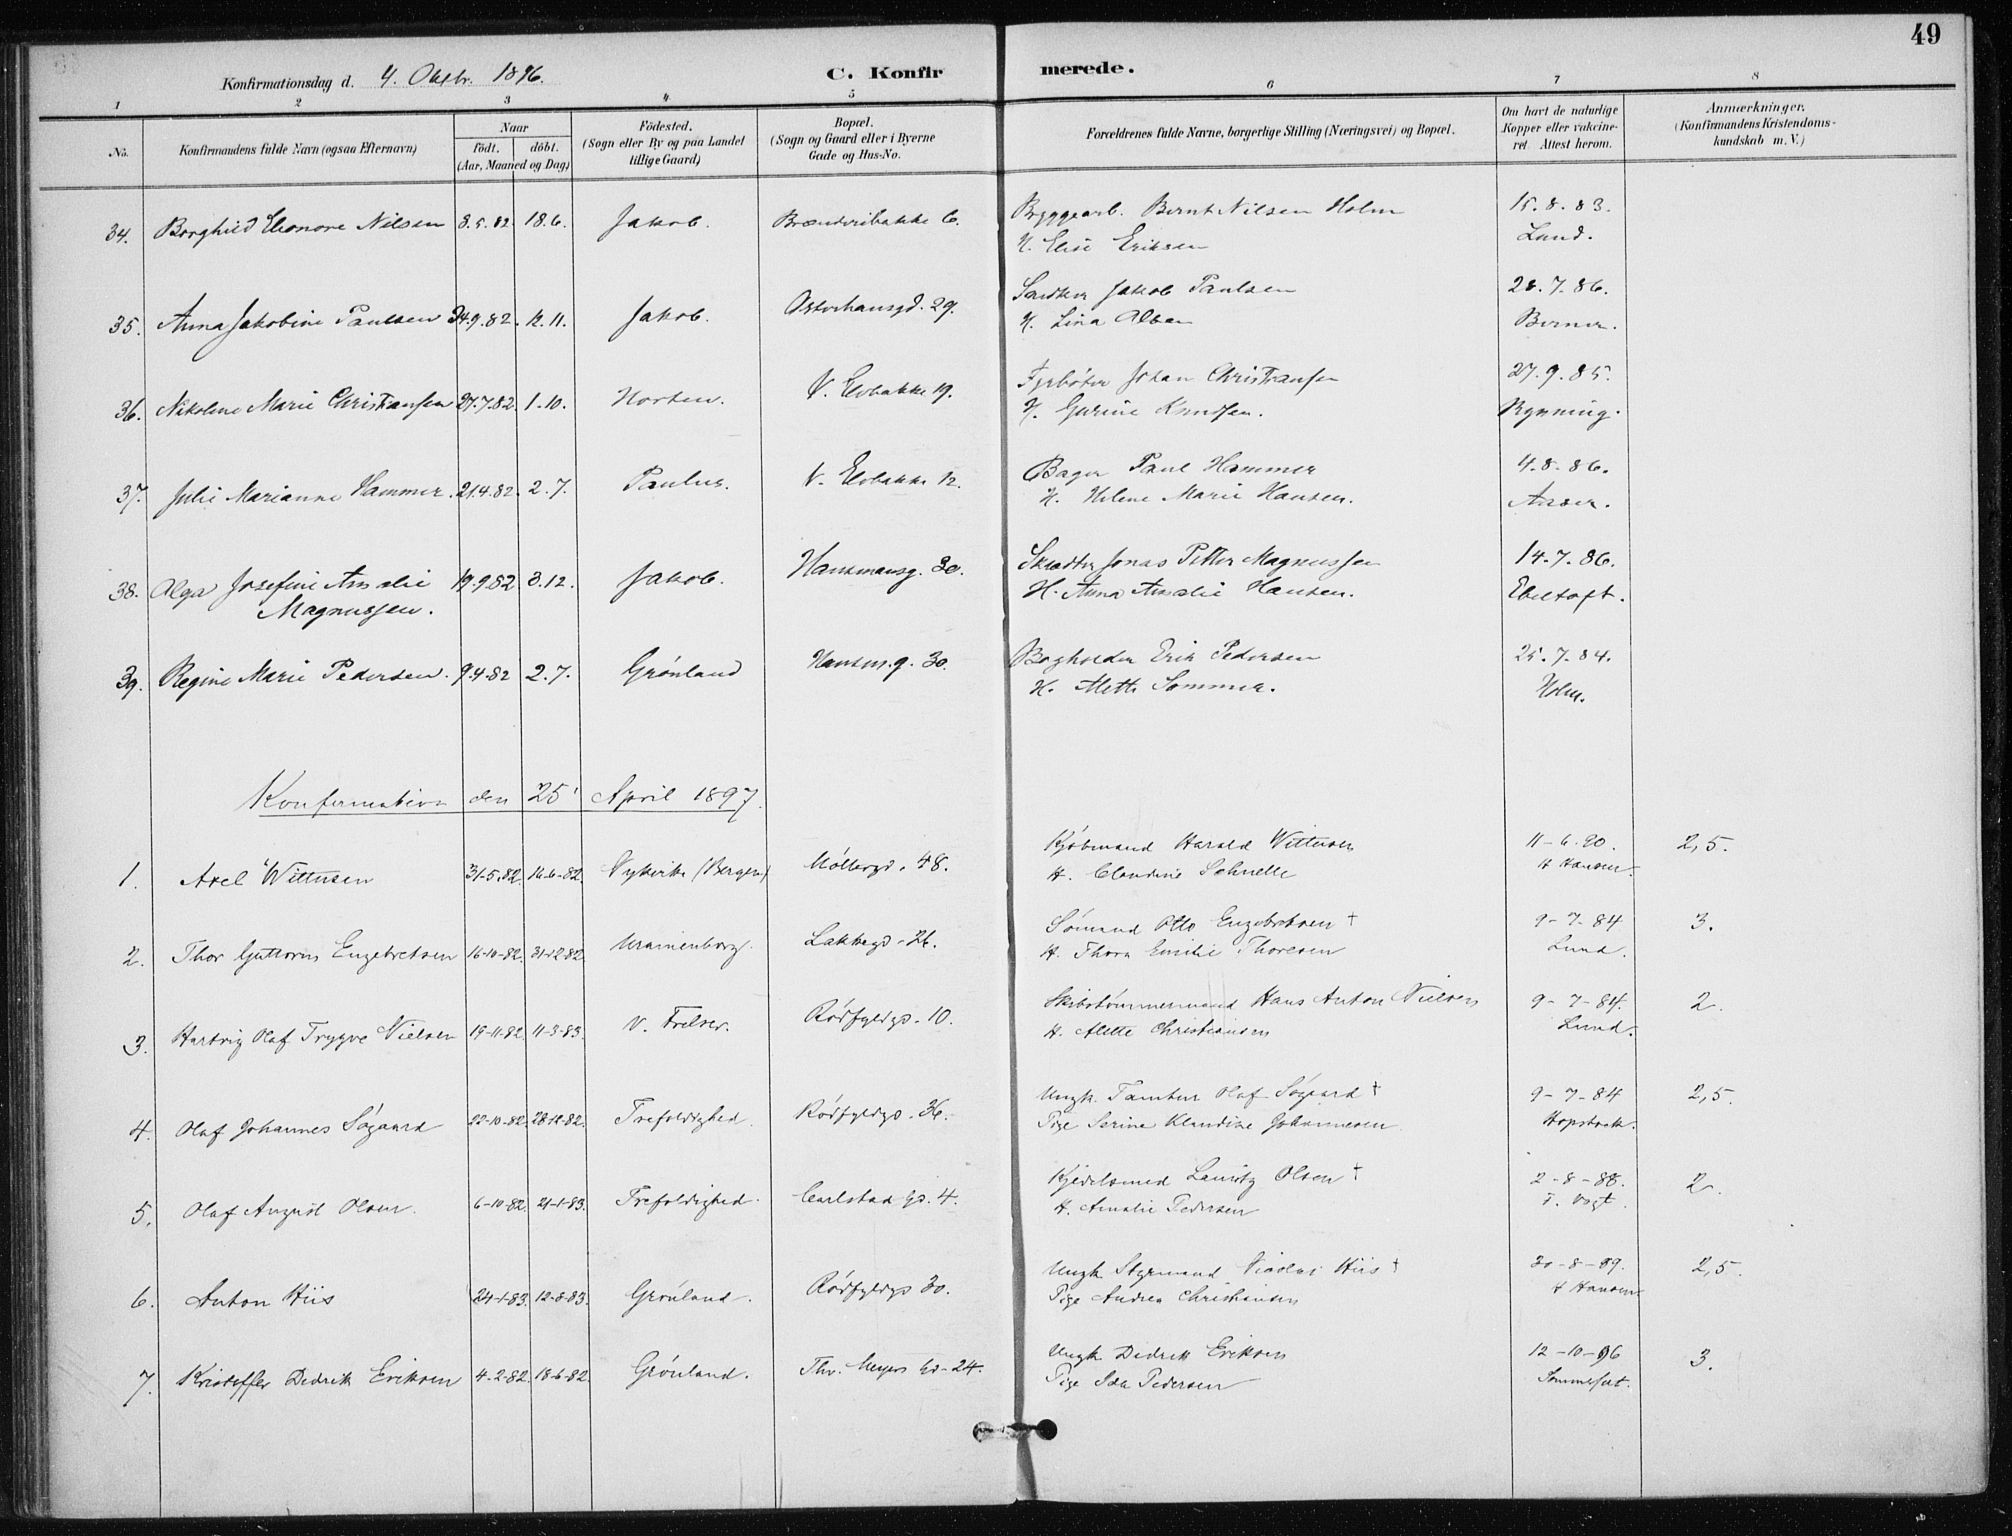 49
Konfirmationsdag d. 4. Oktbr. 1896. C. Konfirmerede.
1 2 3 4 5 6 7 8
No. Konfirmandens fulde Navn (ogsaa Efternavn) Naar födt. döbt. (Aar, Maaned og Dag) Födested. (Sogn eller By og paa Landet tillige Gaard) Bopæl. (Sogn og Gaard eller i Byerne Gade og Hus-No. Forældrenes fulde Navne, borgerlige Stilling (Næringsvei) og Bopæl. Om havt de naturlige Kopper eller vaccineret Attest herom. Anmærkninger. (Konfirmandens Kristendomskundskab m. V.)
34. Borghild Eleonore Nilsen 8.5.82. 18.6. Jakob. Brænderibakke 6. Byggearb. Bernt Nilsen Holm 15.8.83.
H. Elise Eriksen Lund.
35. Anna Jakobine Paulsen 24.9.82. 12.11. Jakob. Osterhausgd. 29. Jakob Paulsen 28.7.86.
H. Lina Olsen Berner.
36. Nikoline Marie Christiansen 27.7.82. 1.10. Horten. V. Elvbakke 19. Fyrböter Johan Christiansen 27.9.85.
H. Gurine Knudsen. Rynning.
37. Julie Marianne Hammer. 21.4.82. 2.7. Paulus. V. Elvbakke 12. Bager Paul Hammer 4.8.86.
H. Helene Marie Hansen. Aaser.
38. Olga Josefine Amalie 19.9.82 3.12. Jakob. Hausmansg. 30. Skrædder Jonas Petter Magnussen 14.7.86.
Magnussen. H. Anna Amalie Hansen. Ebeltoft.
39. Regine Marie Pedersen. 9.4.82 2.7. Grönland Hausm.g. 30. Bogholder Erik Pedersen 25.7.84.
H. Mette Sommer. Holm.
Konfirmation den 25' April 1897.
1. Axel Wittusen 31-5.82. 16-6-82. Nykirke (Bergen) Möllergd. 48. Kjöbmand Harald Wittusen 11-6.90. 2,5.
H. Claudine Schnelle H Hansen.
2. Thor Guttorm Engebretsen 16-10-82. 31-12-82. Uranienborg. Lakkegd. 26. Sömand Otto Engebretsen † 9-7-84 3.
H. Thora Emilie Thoresen Lund.
3. Hartvig Olaf Trygve Nielsen 19-11-82. 11-3-83. V. Frelser. Rödfyldgd. 10. Skibstömmermand Hans Anton Nielsen 9-7-84. 2.
H. Alette Christiansen Lund.
4. Olaf Johannes Sögaard 22-10-82. 28-12-82. Trefoldighed. Rödfyldgd. 36. Ungk. Tambur Olaf Sögaard † 9-7-84 2,5.
Pige Serine Klaudine Johannesen Hopstock.
5. Olaf August Olsen. 6-10-82. 21-1-83. Trefoldighed. Carlstad gd. 4. Kjedelsmed Lauritz Olsen † 2-8-88. 2.
H. Amalie Pedersen J. Vogt.
6. Anton Hiis 24-1-83. 12-8-83. Grönland. Rödfyldgd 30. Ungk Styrmand Nicolai Hiis † 30-8-89. 2,5.
Pige Andrea Christiansen H Hansen
7. Kristoffer Dedrik Eriksen 4-2-82. 18-6-82. Grönland. Thv. Meyers Gd-24. Ungk Dedrik Eriksen 12-10-96 3.
Pige Ida Pedersen Sommerfelt.